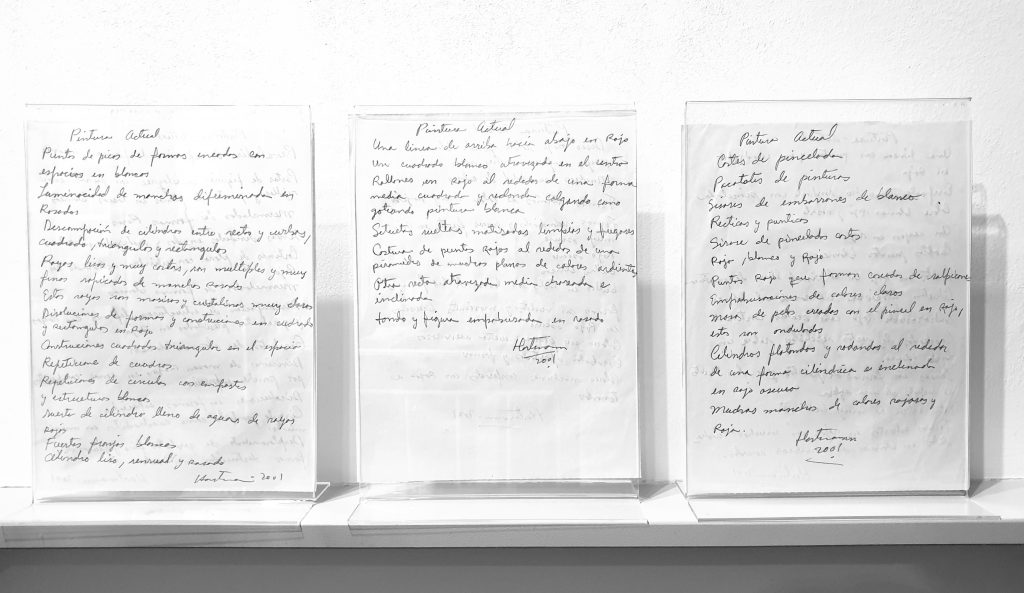 Pintura Actual
Puntos de pico de formas creados con
espacios en blancos
Luminocidad de manchas difuminadas en
Rosados
Descomposición de cilindros entre recto y curbas,
cuadrado, triangulos y rectangulos
Rayas lisas y muy cortas, son multiples y muy
finas de manchas rosadas
Estas rayas son masivas y cristalinas muy claras
Disoluciones de formas y construciones en cuadrado
y Rectangulos en Rojo
Construciones cuadradas triangular en el espacio
Repeticione de cuadros
Repeticiones de circulos con empastes
y estructuras blancas
suerte de cilindro lleno de aguas de rayas
rojas
Fuertes franjas blancas
Cilindro liso, sensual y rosado
Hartmann 2001
Pintura Actual
Una linea de arriba hacia abajo en Rojo
Un cuadrado blanco atravezado en el centro
Rallones en Rojo al rededor de una forma
media cuadrada y redonda colgando como
goteando pintura blanca
Siluetas sueltas, matizadas limpias y fugases
Costura de puntos Rojos al rededor de una
piramide de muchos planos de colores ardientes
Otra recta atravezada media chorreada e
inclinada
fondo y figura en rosado
Hartmann
2001
Pintura Actual
Cortes de pincelada
de pintura
de embarrones de blanco
Recticas y punticos
de pinceladas cortas
Rojo, blanco y Rojo
Puntos Rojo que forman de salpicone
de colores claros
masa de pelos creados con el pincel en Rojo,
estos son ondulados
Cilindros flotando y rodando al rededor
de una forma cilindrica e inclinada
en rojo oscuro
Muchas manchas de colores rojosos y
Roja.
Hartmann
2001